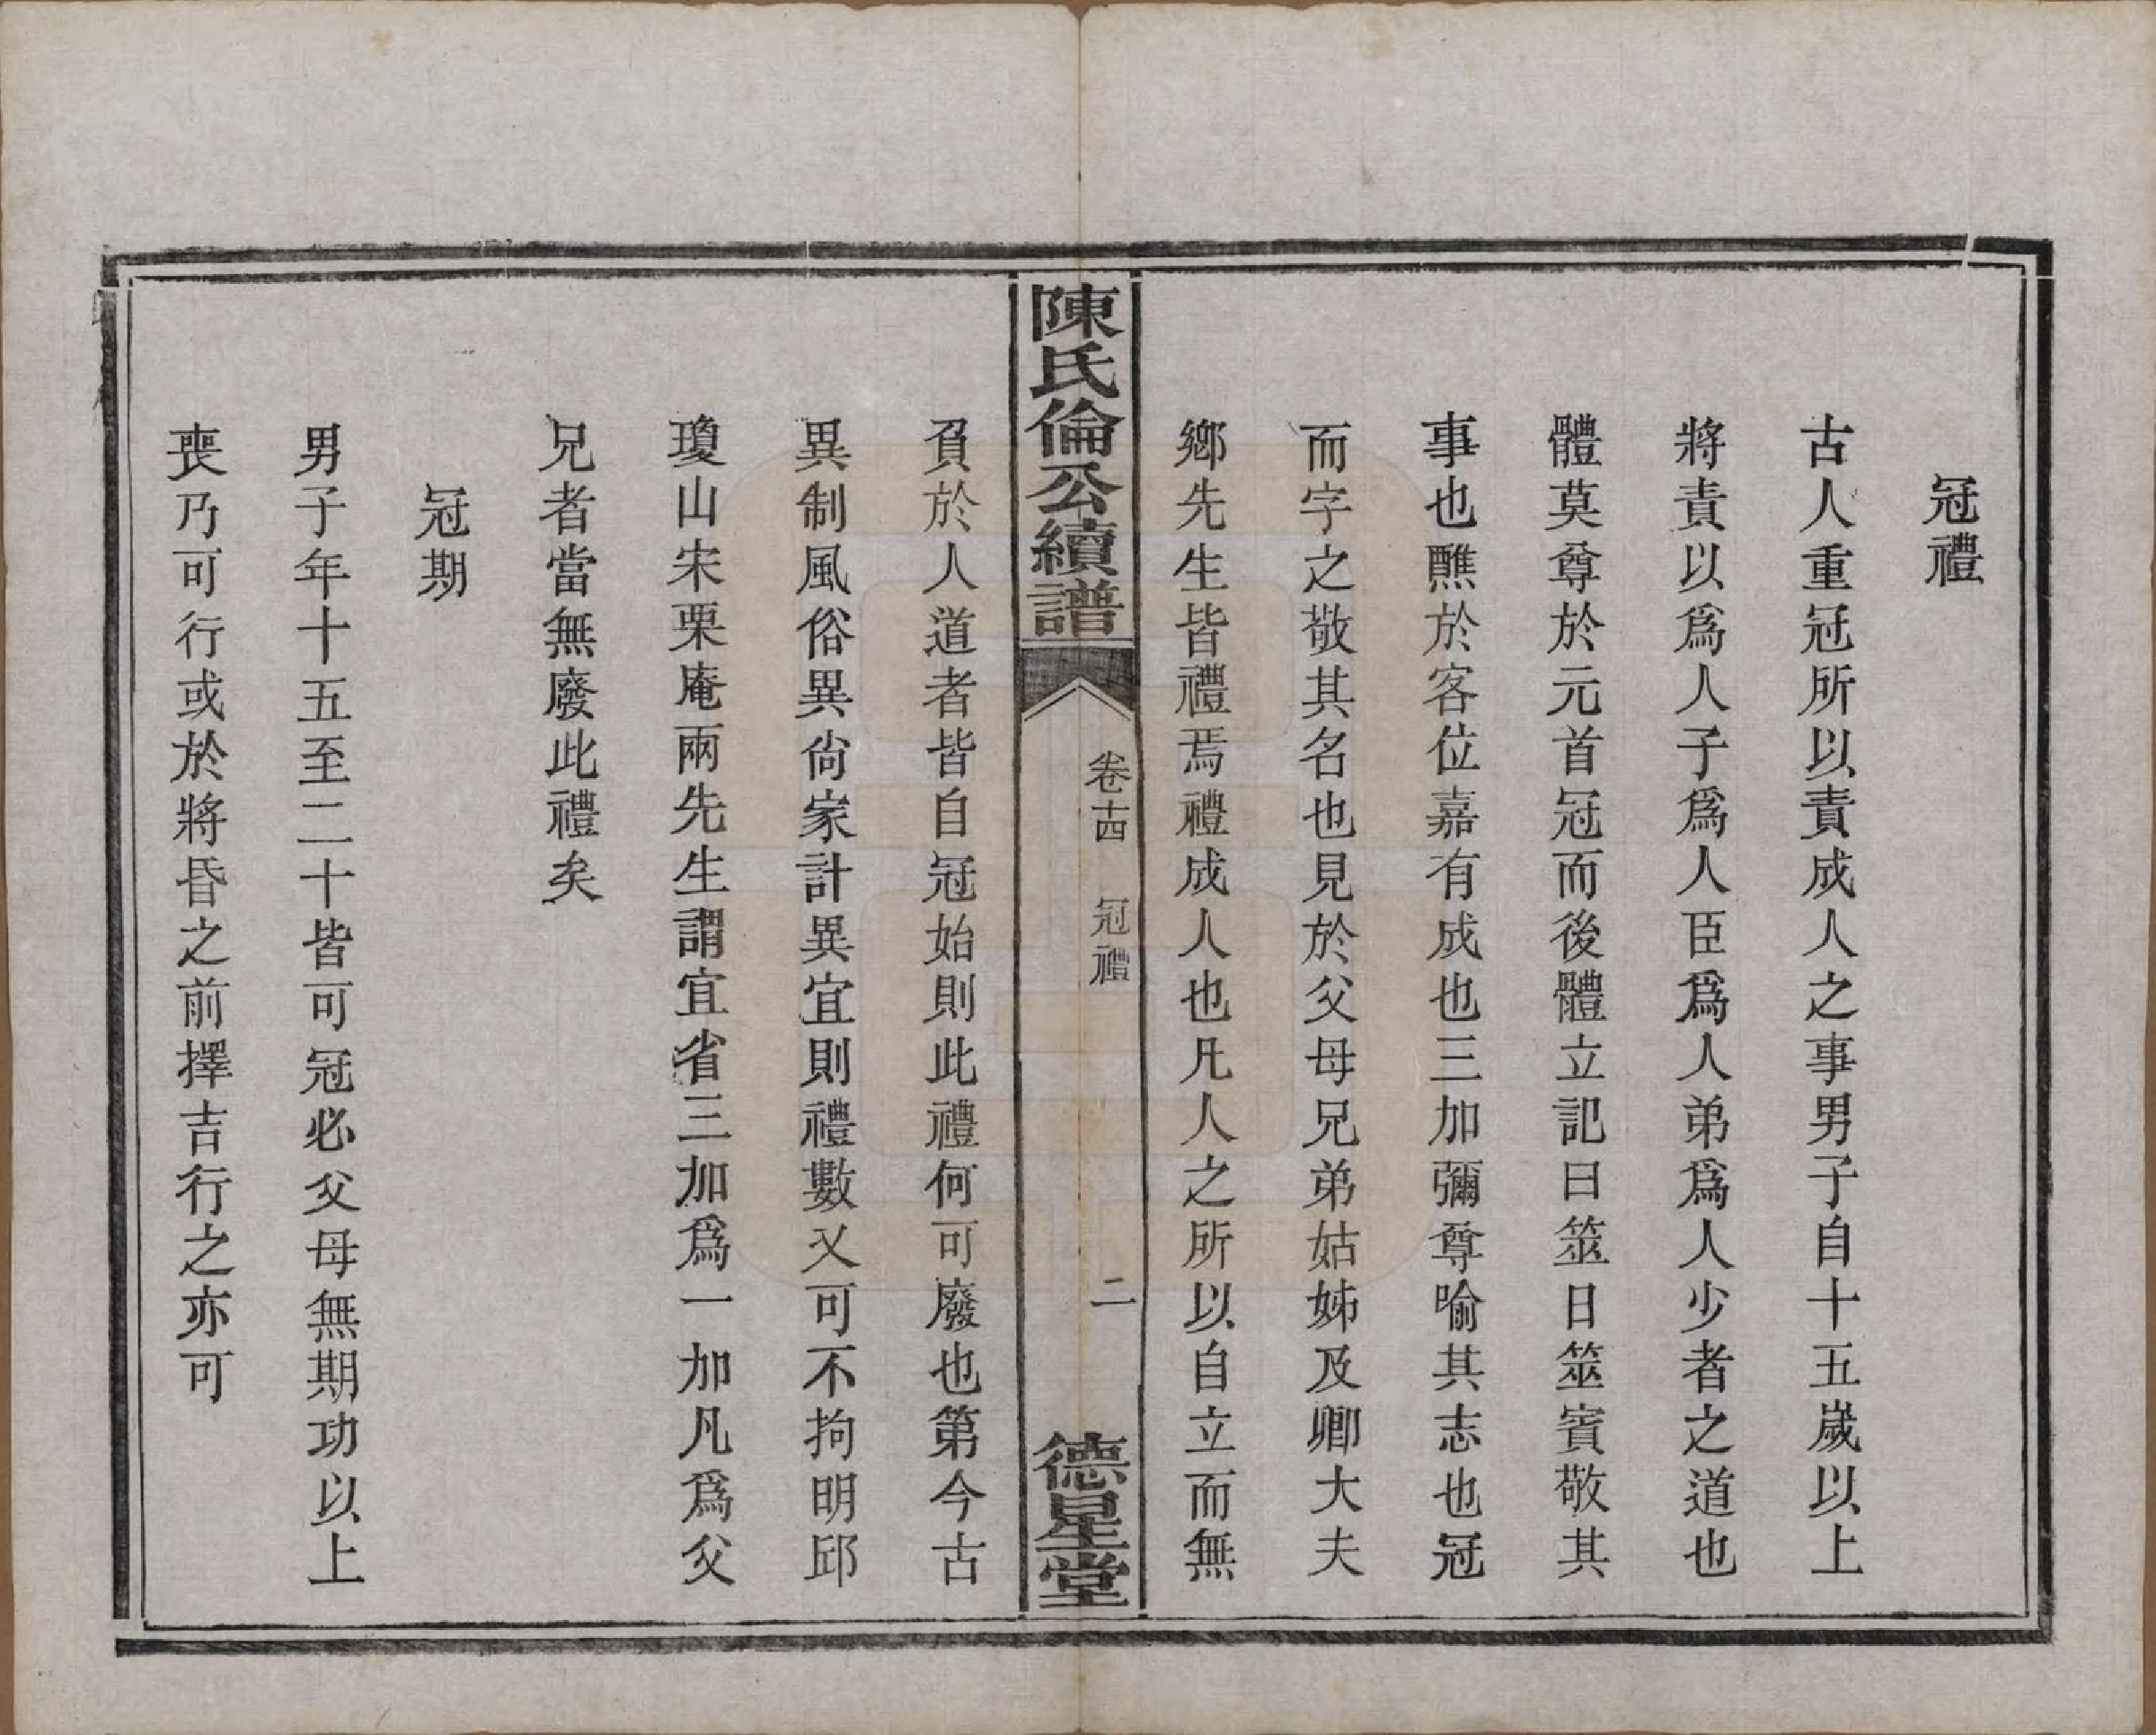 冠禮
古人重冠所以責成人之事男子自十五歲以上
將責以爲人子爲人臣爲人弟爲人少者之道也
體莫尊於元首冠而後體立記曰筮日筮賓敬其
事也醮於客位嘉有成也三加彌尊喻其志也冠
而字之敬其名也見於父母兄弟姑姊及卿大夫
鄉先生皆禮焉禮成人也凡人之所以自立而無
陳氏倫公續譜
卷十四 冠禮
二
德星堂
負於人道者皆自冠始則此禮何可廢也第今古
異制風俗異尙家計異宜則禮數又可不拘明邱
瓊山宋栗庵兩先生謂宜省三加爲一加凡爲父
兄者當無廢此禮矣
冠期
男子年十五至二十皆可冠必父母無期功以上
喪乃可行或於將昏之前擇吉行之亦可